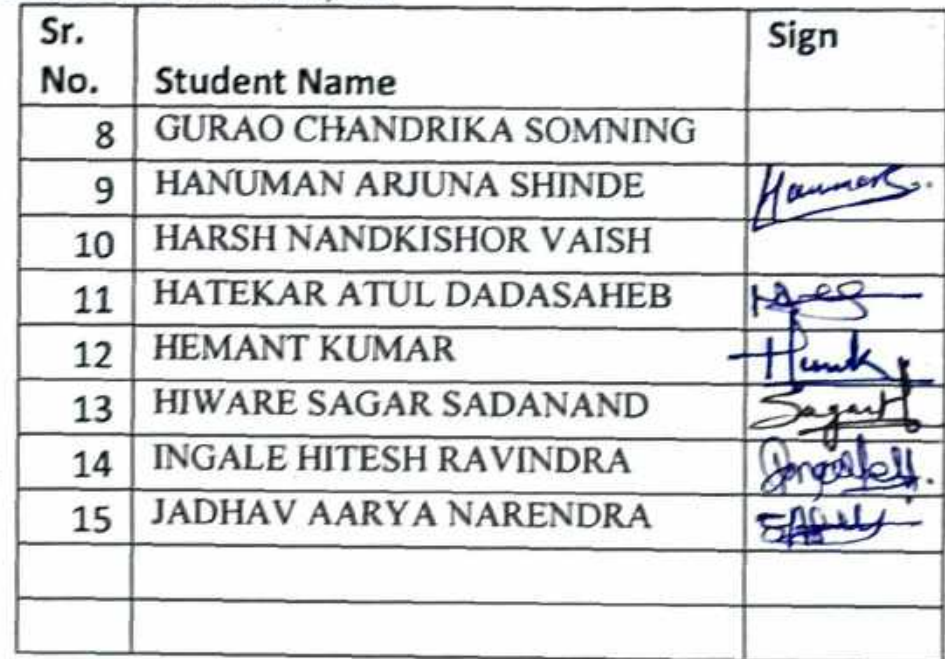 Sr. No. Student Name Sign
8 GURAO CHANDRIKA SOMNING
9 HANUMAN ARJUNA SHINDE
10 HARSH NANDKISHOR VAISH
11 HATEKAR ATUL DADASAHEB
12 HEMANT KUMAR
13 HIWARE SAGAR SADANAND
14 INGALE HITESH RAVINDRA
15 JADHAV AARYA NARENDRA